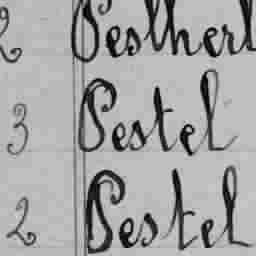 2 Pesther
3 Pestel
2 Pestel